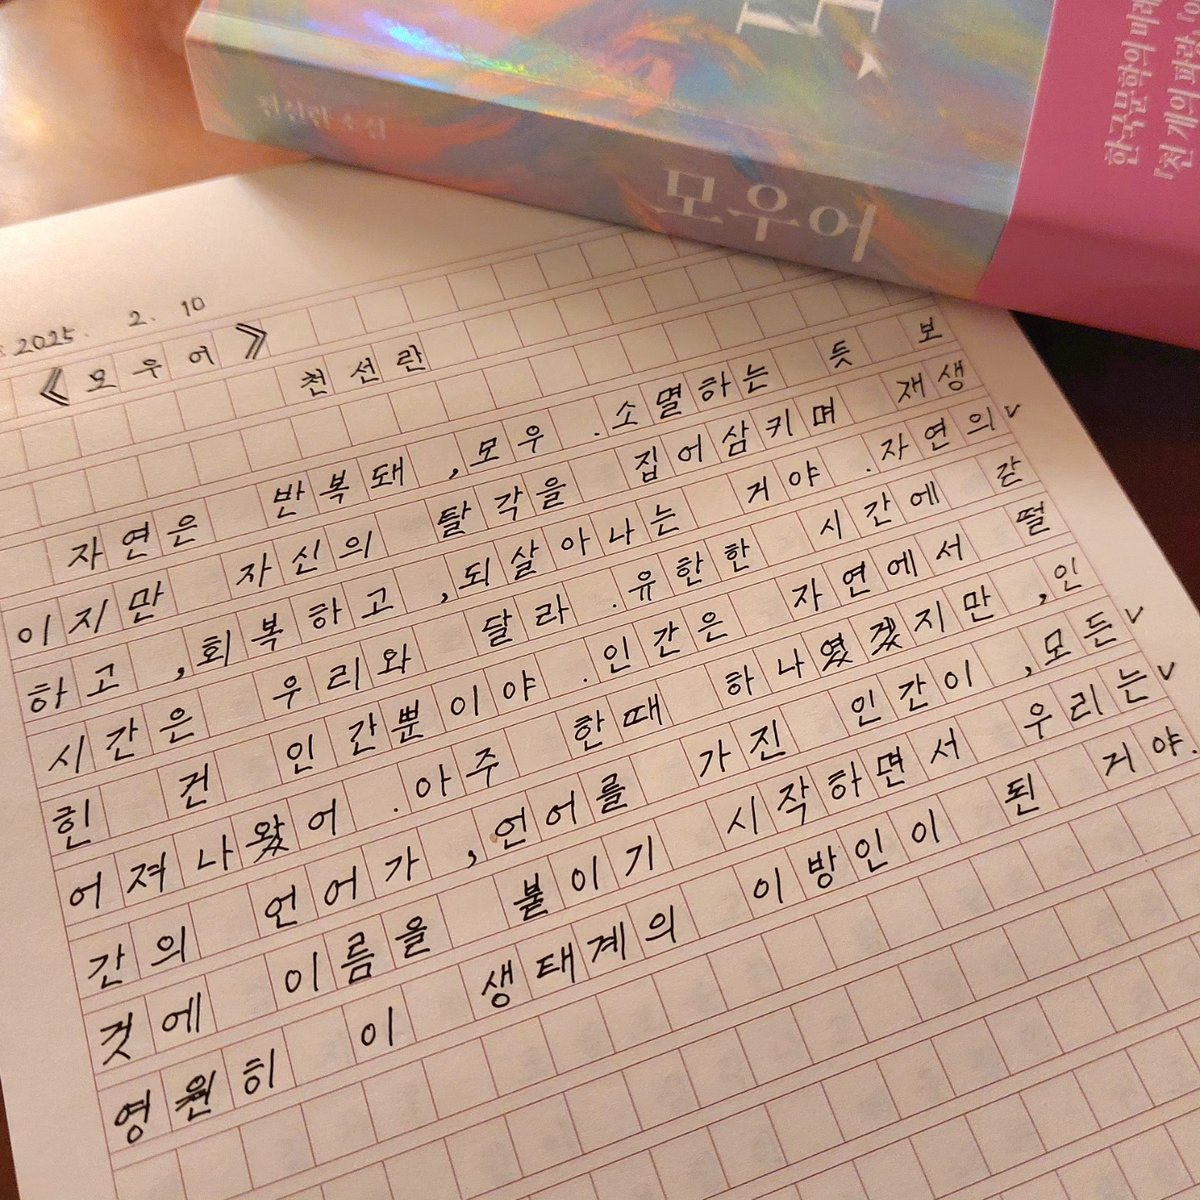 천선란 소설
모우어
한국문학의 미래
『천 개의 파랑
2025. 2. 10
《모우어》 천선란
자연은 반복돼, 모우. 소멸하는 듯 보
이지만 자신의 탈각을 집어삼키며 재생
하고, 회복하고, 되살아나는 거야. 자연의∨
시간은 우리와 달라. 유한한 시간에 갇
힌 건 인간뿐이야. 인간은 자연에서 떨
어져 나왔어. 아주 한때 하나였겠지만, 인
간의 언어가, 언어를 가진 인간이, 모든∨
것에 이름을 붙이기 시작하면서 우리는∨
영원히 이 생태계의 이방인이 된 거야.